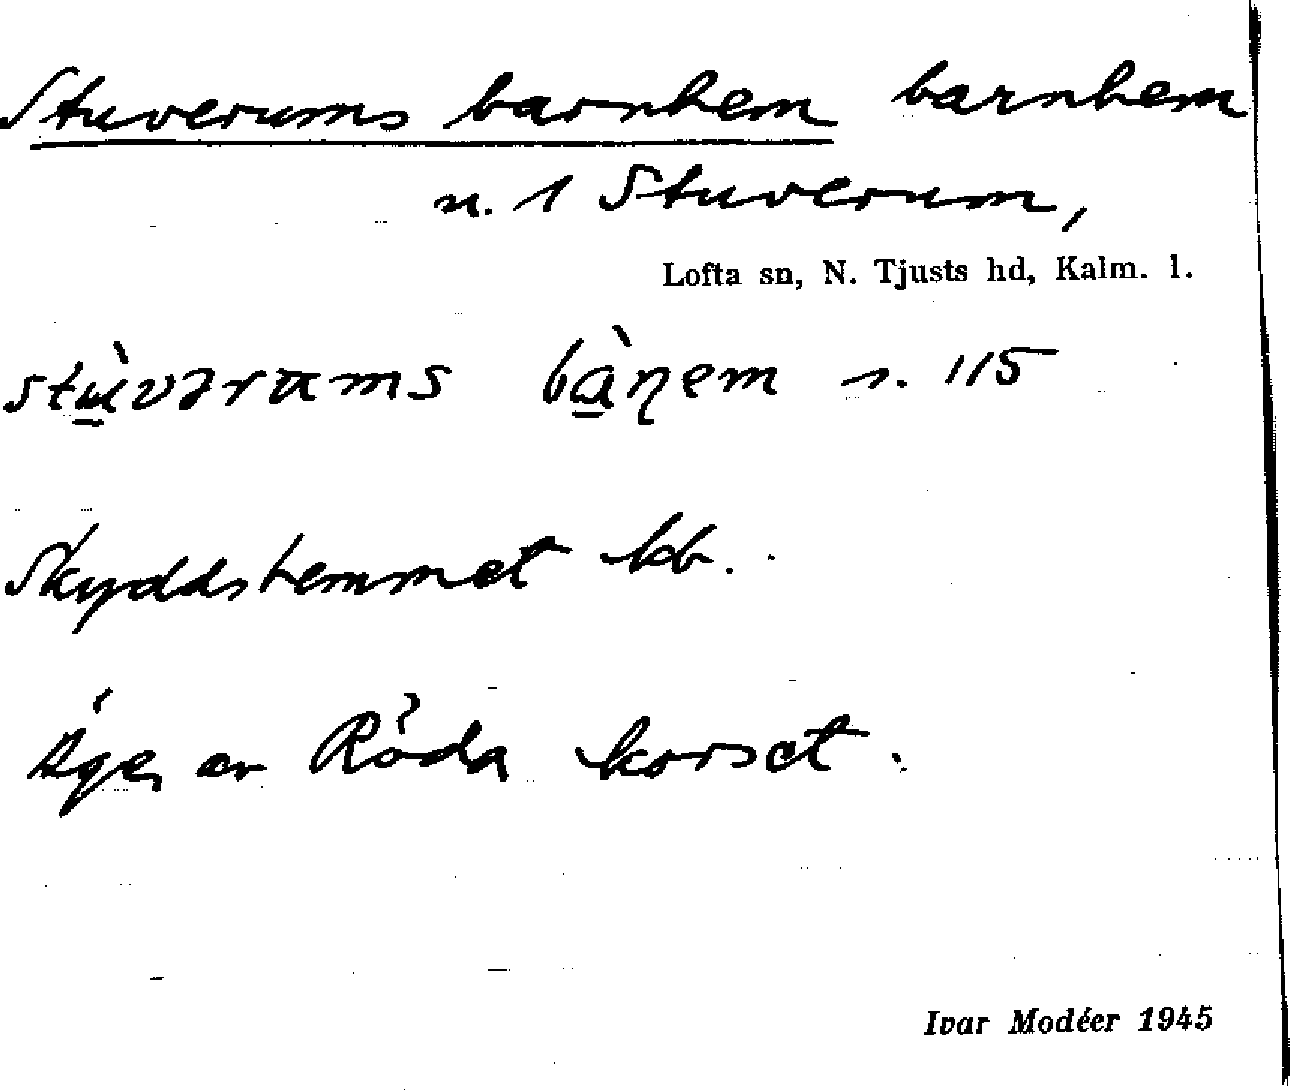 Stuverums barnhem barnhem
n. 1 Stuverum,
Lofta sn, N. Tjusts hd, Kalm. l.
stù̱vərams bà̱ɳem s. 115
Skyddshemmet kb.
Äges av Röda korset.
Ivar Modéer 1945